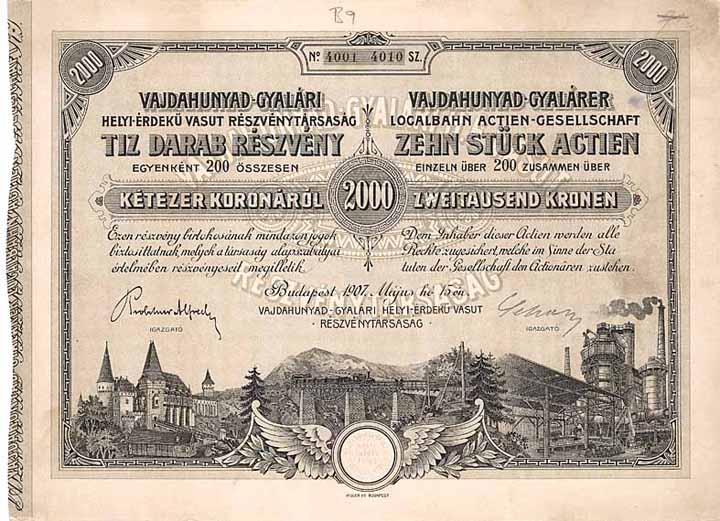 B9
No. 4001 4010 SZ.
2000
2000
VAJDAHUNYAD-GYALÁRI
HELYI-ÉRDEKŰ VASUT RÉSZVÉNYTÁRSASÁG
TIZ DARAB RÉSZVÉNY
EGYENKÉNT 200 ÖSSZESEN
KÉTEZER KORONÁRÓL
Ezen részvény birtokosának mindazon jogok
biztosíttatnak, melyek a társaság alapszabályai
értelmében részvényeseit megilletik.
2000
VAJDAHUNYAD-GYALÁRER
LOCALBAHN ACTIEN-GESELLSCHAFT
ZEHN STÜCK ACTIEN
EINZELN ÜBER 200 ZUSAMMEN ÜBER
ZWEITAUSEND KRONEN
Dem Inhaber dieser Actien werden alle
Rechte zugesichert, welche im Sinne der Sta-
tuten der Gesellschaft den Actionären zustehen.
RÉSZVÉNYTÁRSASÁG
Budapest 1907. Május hó 15-én
VAJDAHUNYAD-GYALÁRI HELYI-ÉRDEKŰ VASUT
RÉSZVÉNYTÁRSASÁG
IGAZGATÓ
IGAZGATÓ